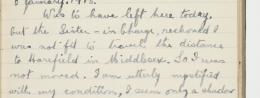 8 January, 1918.
Was to have left here today,
but the Sister-in Charge, reckoned I
was not fit to travel the distance
to Harefield in Middlesex. So I was
not moved. I am utterly mystified
with my condition, I seem only a shadow